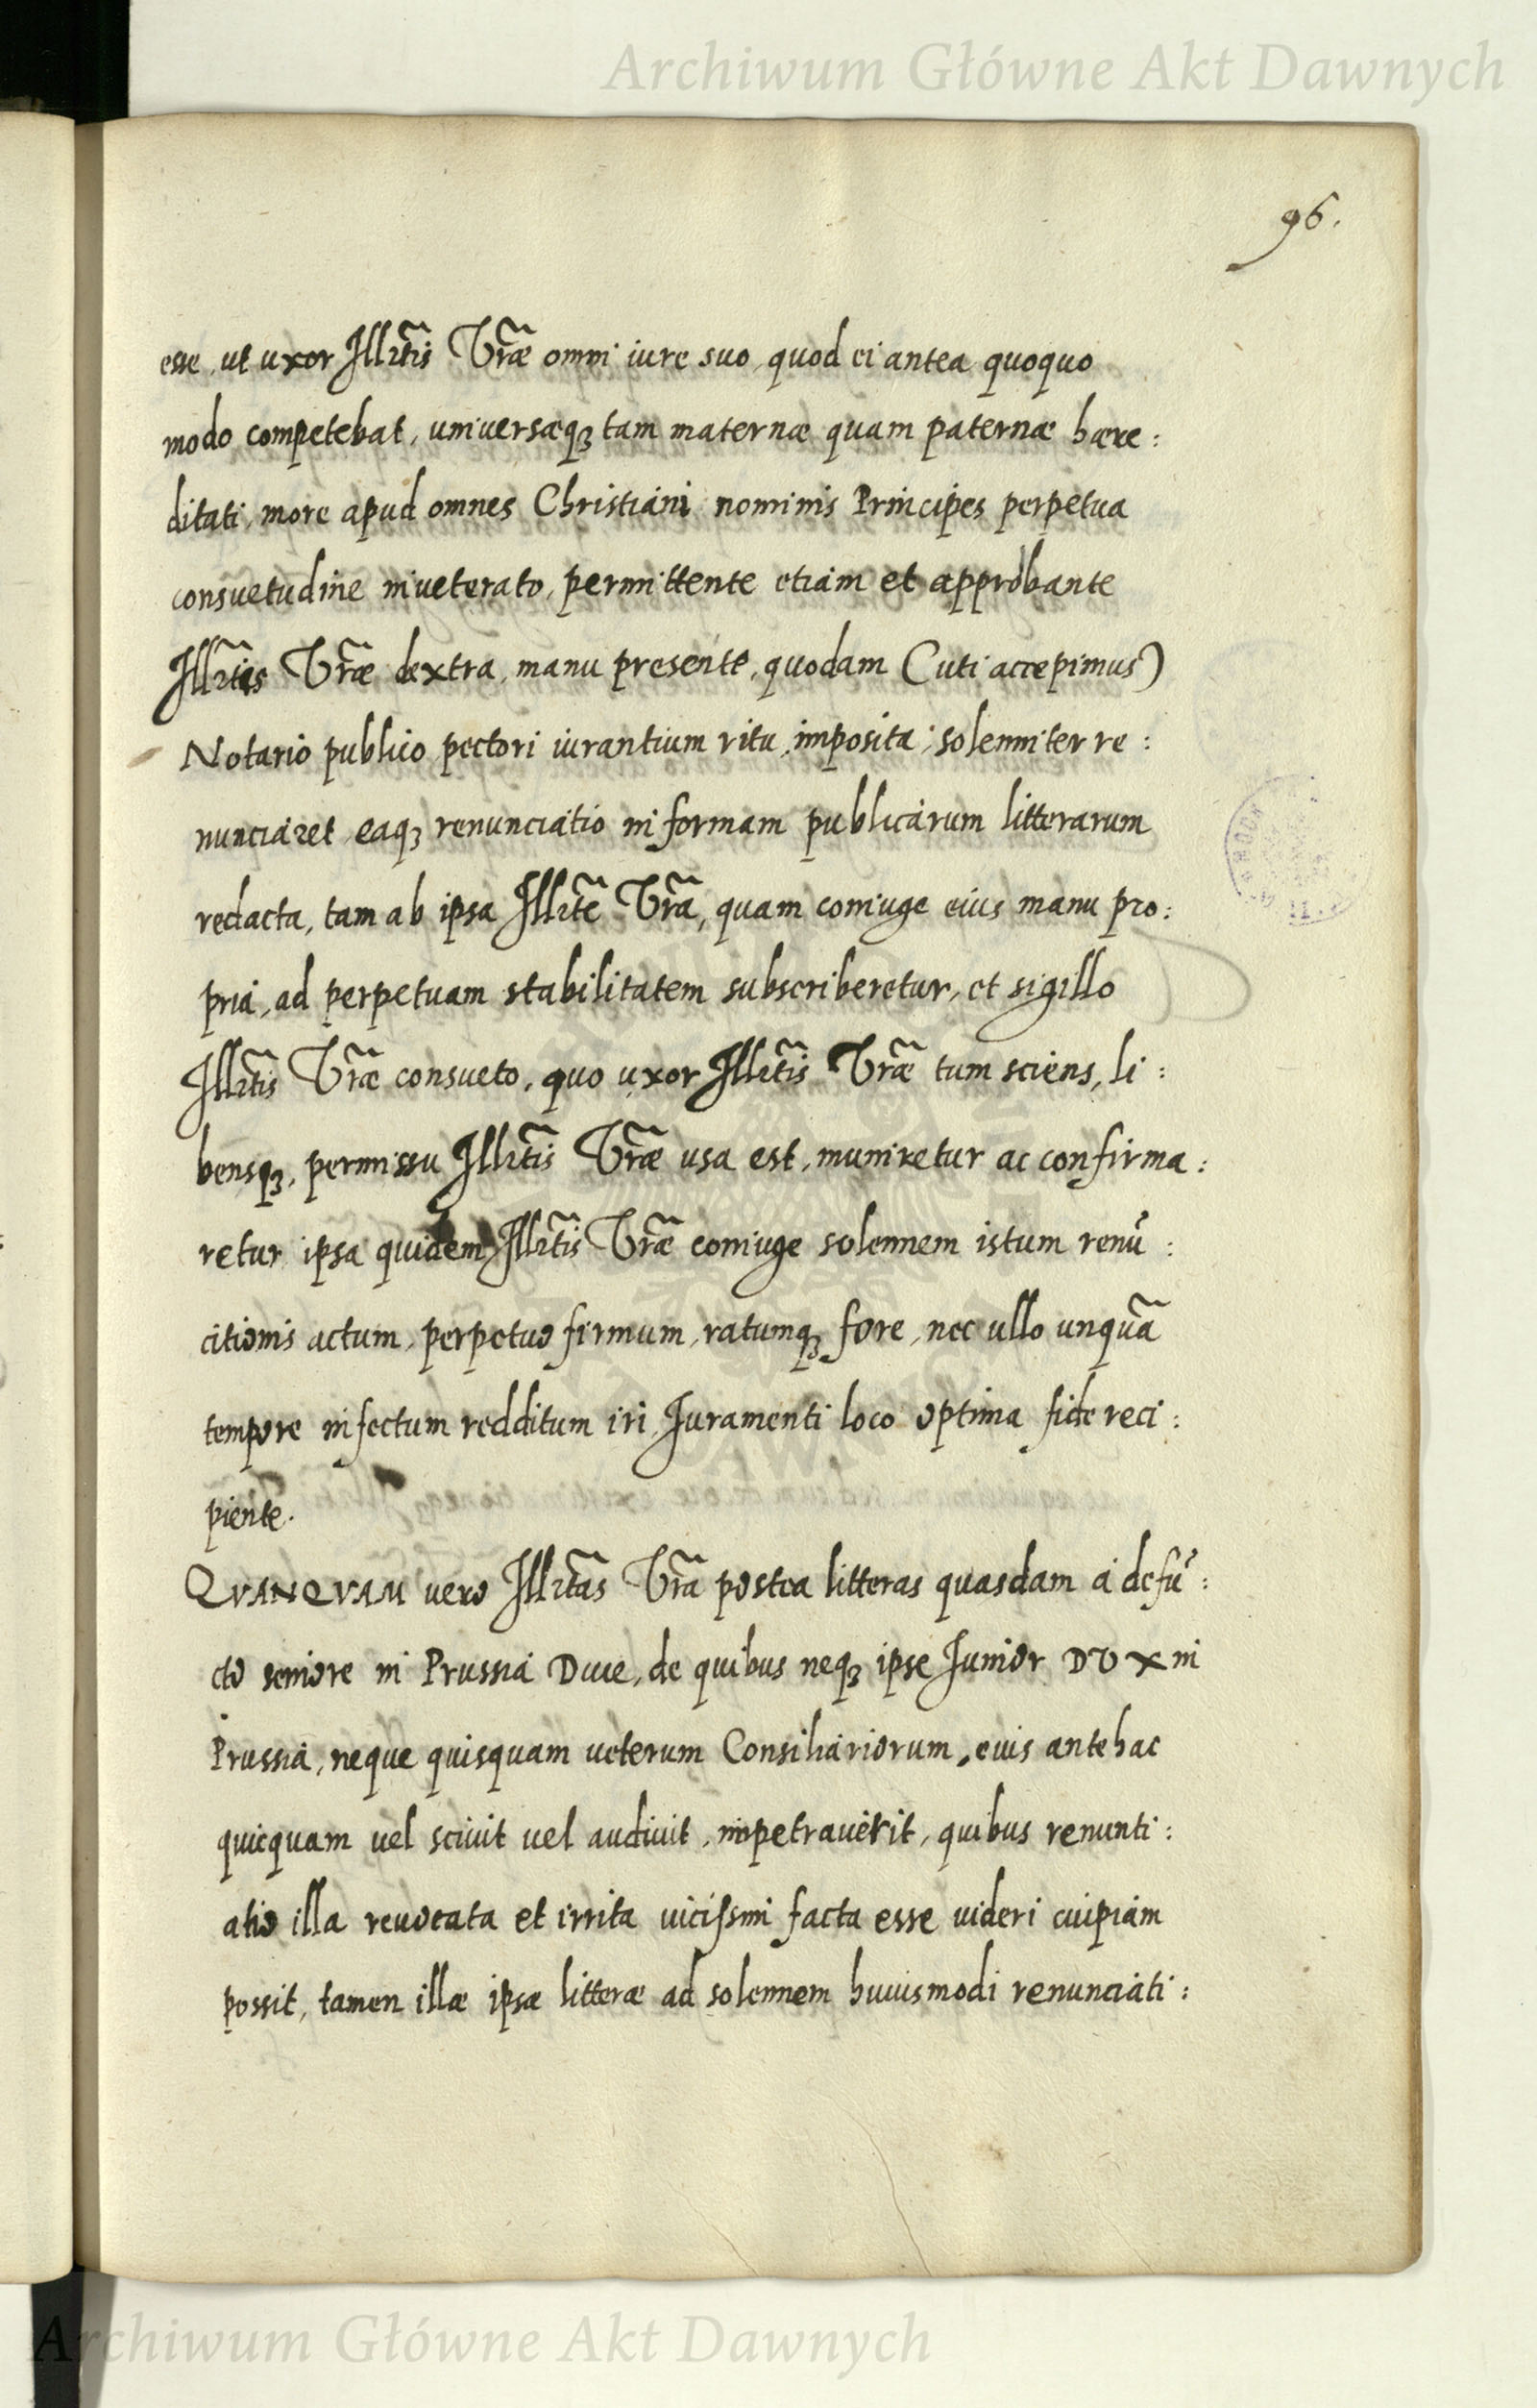 Archiwum Główne Akt Dawnych
96.
esse, ut uxor Illr̃tis Vr̃æ omni iure suo, quod ei antea quoquo
modo competebat, universæq₃ tam maternæ quam paternæ hære:
ditati, more apud omnes Christiani nominis Principes perpetua
consuetudine inveterato, permittente etiam et approbante
Illr̃tis Vr̃æ dextra, manu presente, quodam (uti accepimus)
Notario publico pectori iurantium ritu, imposita, solenniter re:
nunciaret eaq₃ renunciatio in formam publicarum litterarum
redacta, tam ab ipsa Illr̃te Vr̃a, quam coniuge eius manu pro:
pria, ad perpetuam stabilitatem subscriberetur, et sigillo
Illr̃tis Vr̃æ consueto, quo uxor Illr̃tis Vr̃æ tum sciens, li:
bensq₃, permissu Illr̃tis Vr̃æ usa est, muniretur ac confirma:
retur ipsa quidem Illr̃tis Vr̃æ coniuge solennem istum renũ:
citionis actum, perpetuo firmum, ratumq₃ fore, nec ullo unquã
tempore infectum redditum iri, Iuramenti loco optima fide reci:
piente.
QVANQVAM vero Illr̃tas Vr̃a postea litteras quasdam a defũ:
cto seniore in Prussia Duce, de quibus neq₃ ipse Iunior DVX in
Prussia, neque quisquam ueterum Consiliariorum, euis antehac
quicquam vel scivit uel audivit, impetraverit, quibus renunti:
atio illa revocata et irrita uicissim facta esse uideri cuipiam
possit, tamen illæ ipsæ litteræ ad solennem huiusmodi renunciati:
Archiwum Główne Akt Dawnych